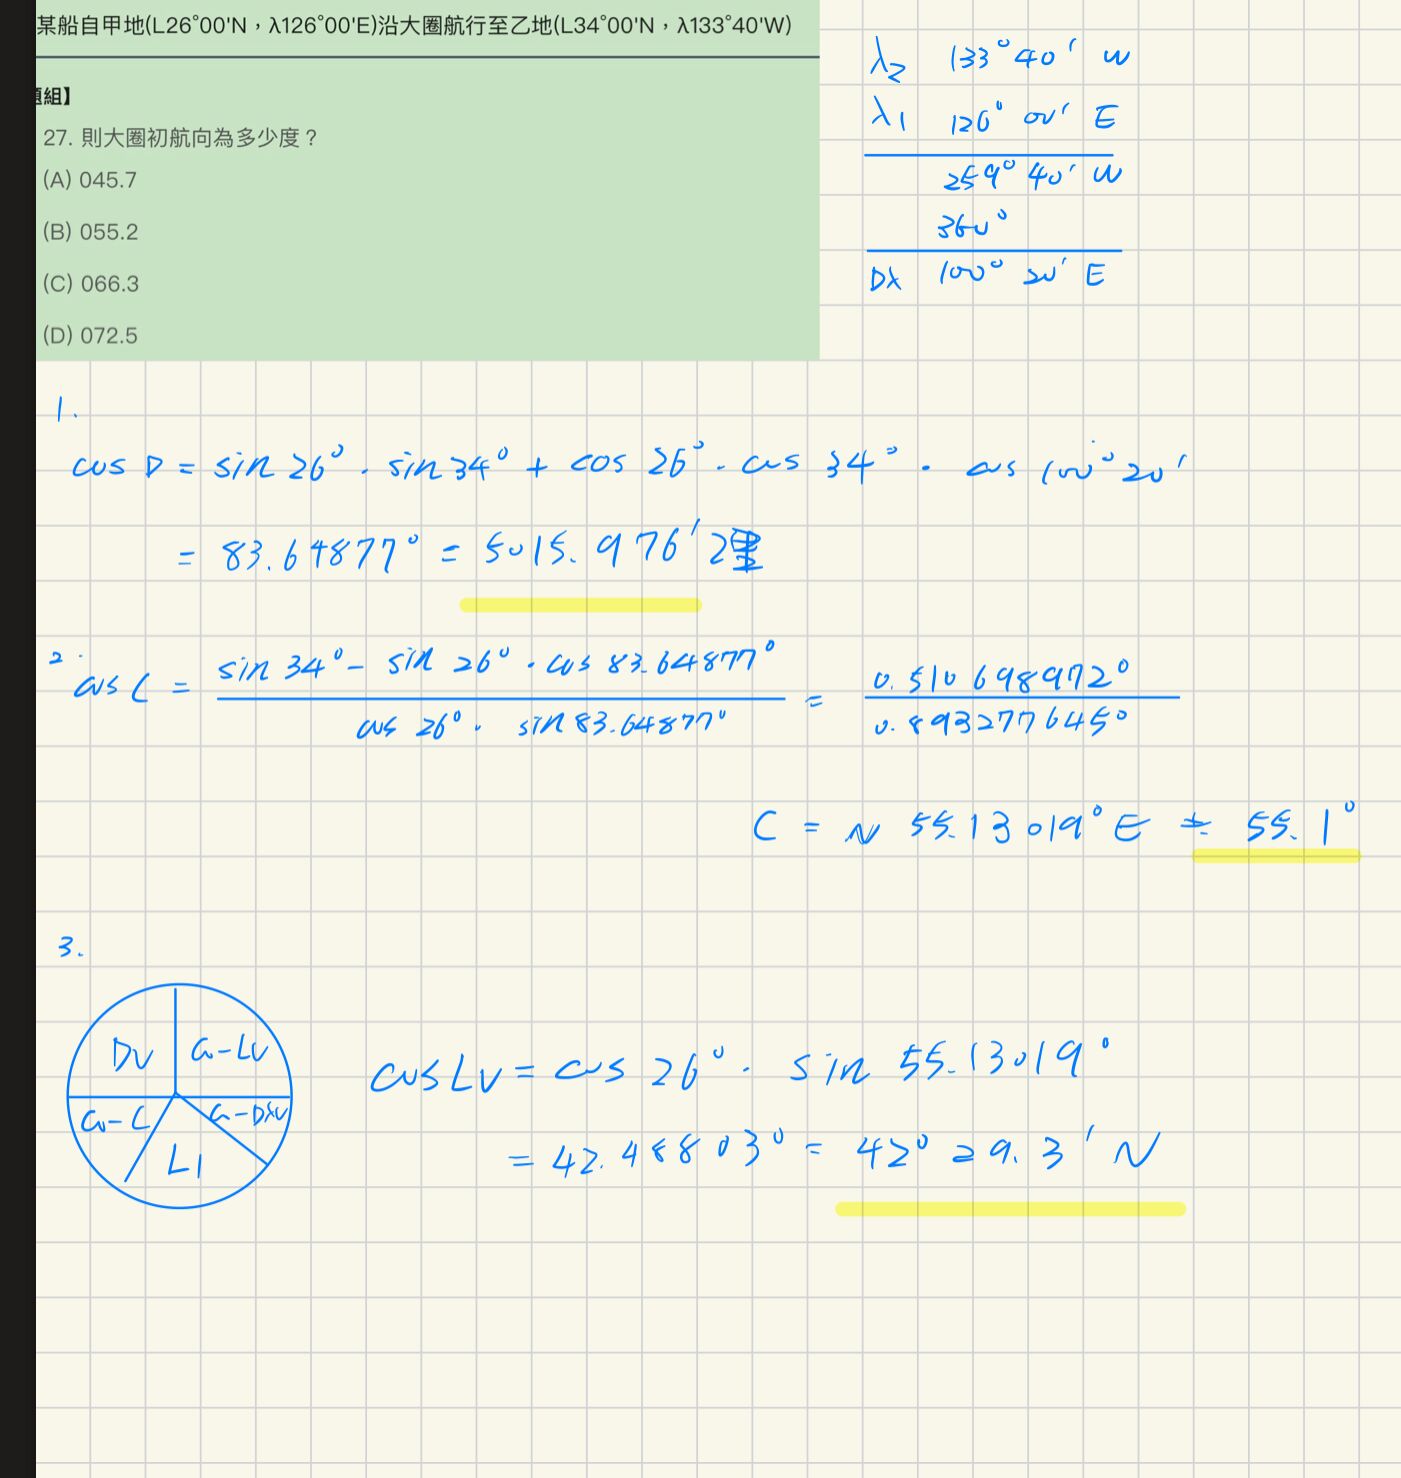 某船自甲地(L26°00'N，λ126°00'E)沿大圈航行至乙地(L34°00'N，λ133°40'W)
題組】
27. 則大圈初航向為多少度？
(A) 045.7
(B) 055.2
(C) 066.3
(D) 072.5
λ2 133°40' W
λ1 126° 00' E
259° 40' W
360°
Dλ 100° 20' E
1.
cos D = sin 26° · sin 34° + cos 26° · cos 34° · cos 100° 20'
= 83.64877° = 5015.976' 浬
2.
cos C = sin 34° - sin 26° · cos 83.64877° / cos 26° · sin 83.64877° = 0.510698972° / 0.8932776450
C = N 55.13019° E ≒ 55.1°
3.
Dv
Co-Lv
Co-C
Co-Dλv
L1
cos Lv = cos 26° · sin 55.13019°
= 42.48803° = 42° 29.3' N